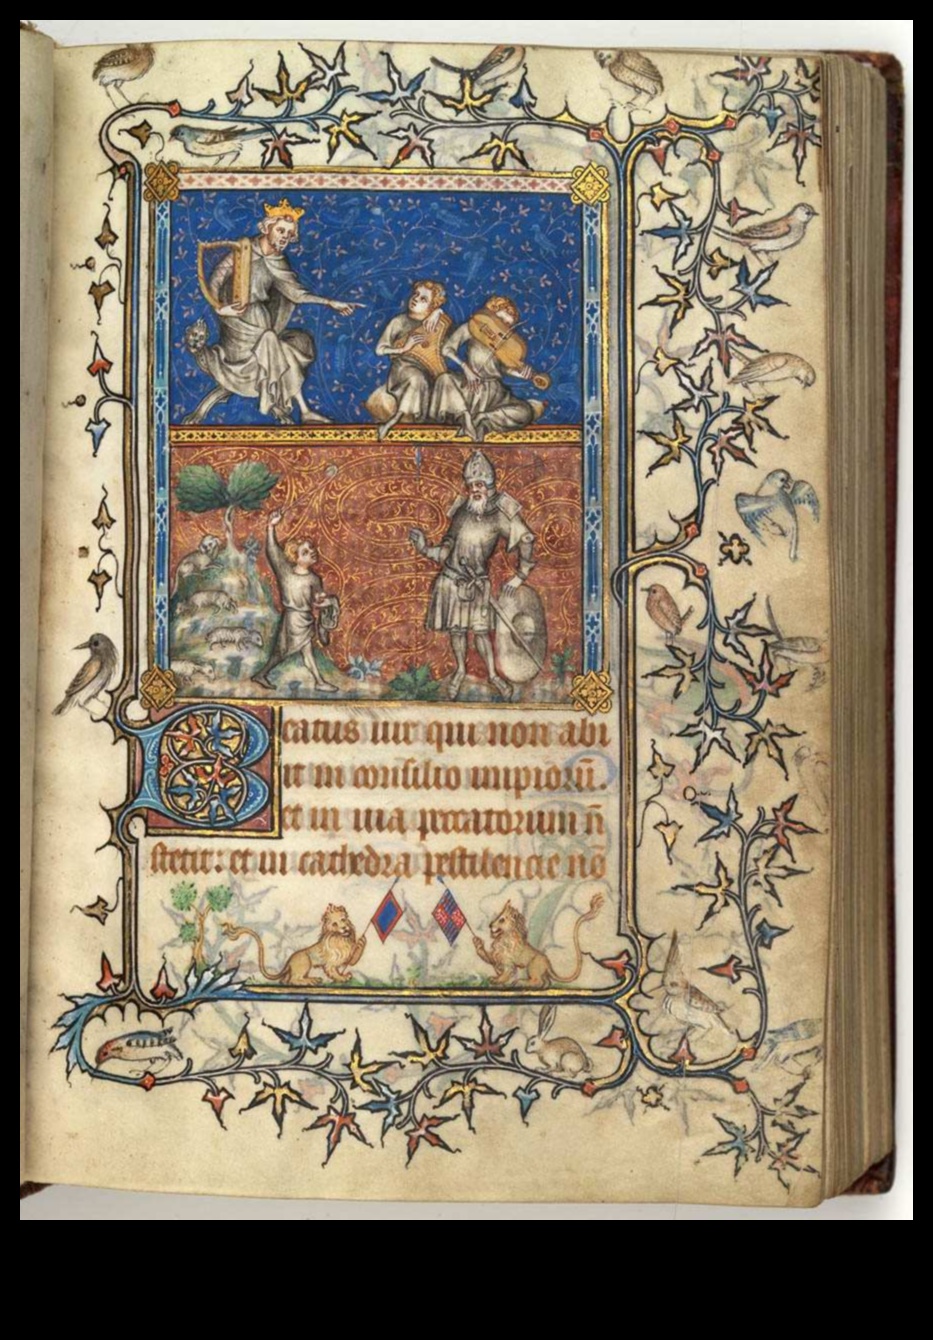 Beatus uir qui non abi
it in consilio impiorū.
et in uia peccatorium n̄
stetit: et in cathedra pestilencie nō